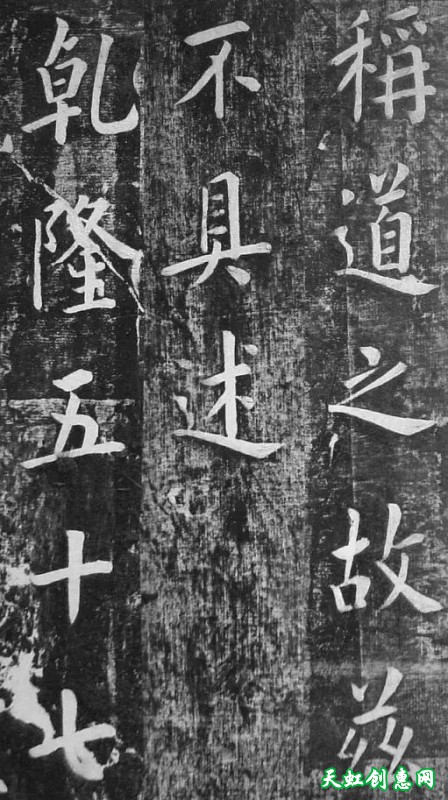 稱道之故茲
不具述
乹隆五十七
天虹创惠网